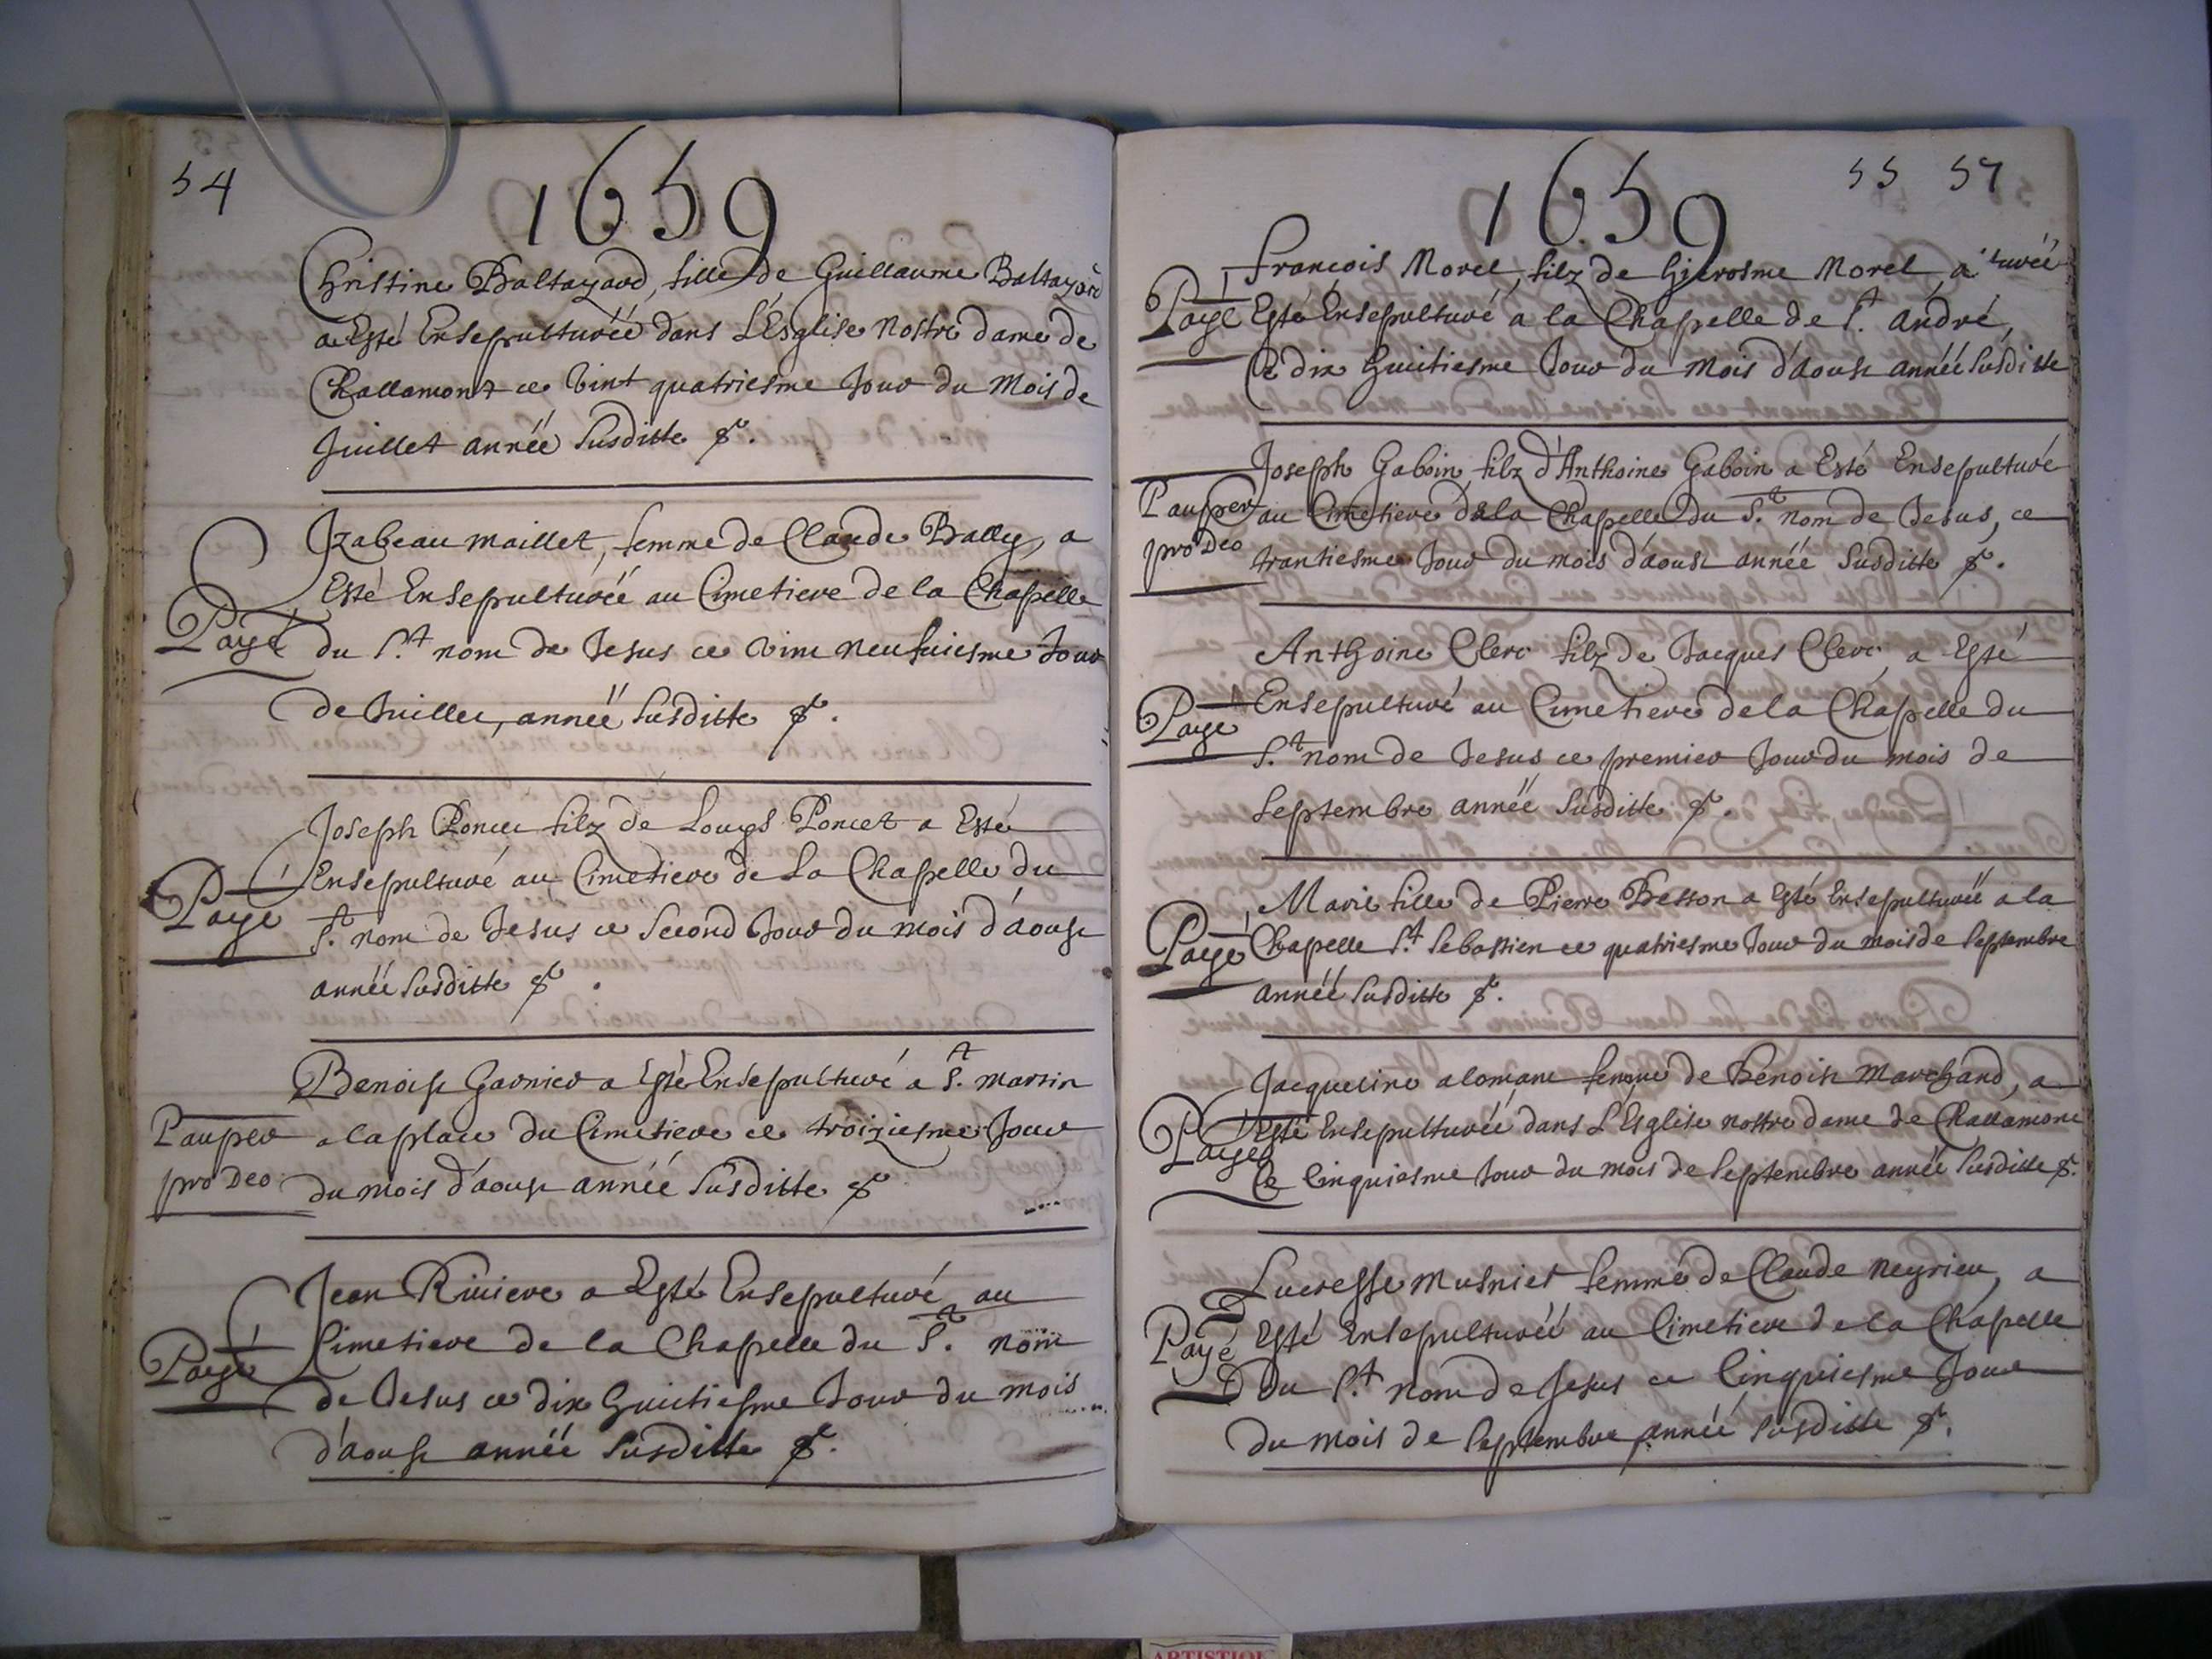 54
1659
Christine Baltazard, fille de Guillaume Baltazard
a Esté Ensepulturéé dans L'Esglise Nostre dame de
Challamont ce vint quatriesme Jour du Mois de
Juillet année susditte &.
Izabeau Maillet, femme de Claude Bally, a
Esté Ensepulturéé au Cimetiere de la Chapelle
Payé
du St. nom de Jesus ce vint neufuiesme Jour
de Juillet, année susditte &.
Joseph Poncet filz de Louys Poncet a Esté
Ensepulturé au Cimetiere de La Chapelle du
Payé
St. nom de Jesus ce Second Jour du mois d'aoust
année susditte &.
Benoist Garnier a Esté Ensepulturé a St. martin
Pauper
a la place du Cimetiere ce troiziesme Jour
pro Deo
du mois d'aoust année susditte &
Jean Riviere a Esté Ensepulturé au
Payé
Cimetiere de la Chapelle du St. nom
de Jesus ce dix huitiesme Jour du mois
d'aoust année susditte &.
55 57
1659
Francois Morel, filz de hierosme Morel, a
Payé
Esté Ensepulturé a la Chapelle de St. André,
Ce dix huitiesme Jour du Mois d'aoust année susditte
Joseph Gaboin filz d'Anthoine Gaboin a Esté Ensepulturé
Pauper
au Cimetiere de la Chapelle du St. nom de Jesus, ce
pro Deo
trantiesme Jour du mois d'aoust année susditte &.
Anthoine Clerc filz de Jacques Clerc a Esté
Payé
Ensepulturé au Cimetiere de la Chapelle du
St. nom de Jesus ce premier Jour du mois de
Septembre année susditte &.
Marie fille de Pierre Besson a Esté Ensepulturéé a la
Payé
Chapelle St. Sebastien ce quatriesme Jour du mois de Septembre
année susditte &.
Jacqueline femme de Benoist Marchand, a
Payé
Esté Ensepulturéé dans L'Esglise nostre dame de Challamont
Ce Cinquiesme Jour du mois de Septembre année susditte &.
Lucresse Musnier femme de Claude Neyrieu, a
Payé
Esté Ensepulturéé au Cimetiere de la Chapelle
Du St. nom de Jesus ce Cinquiesme Jour
du mois de Septembre année susditte &.